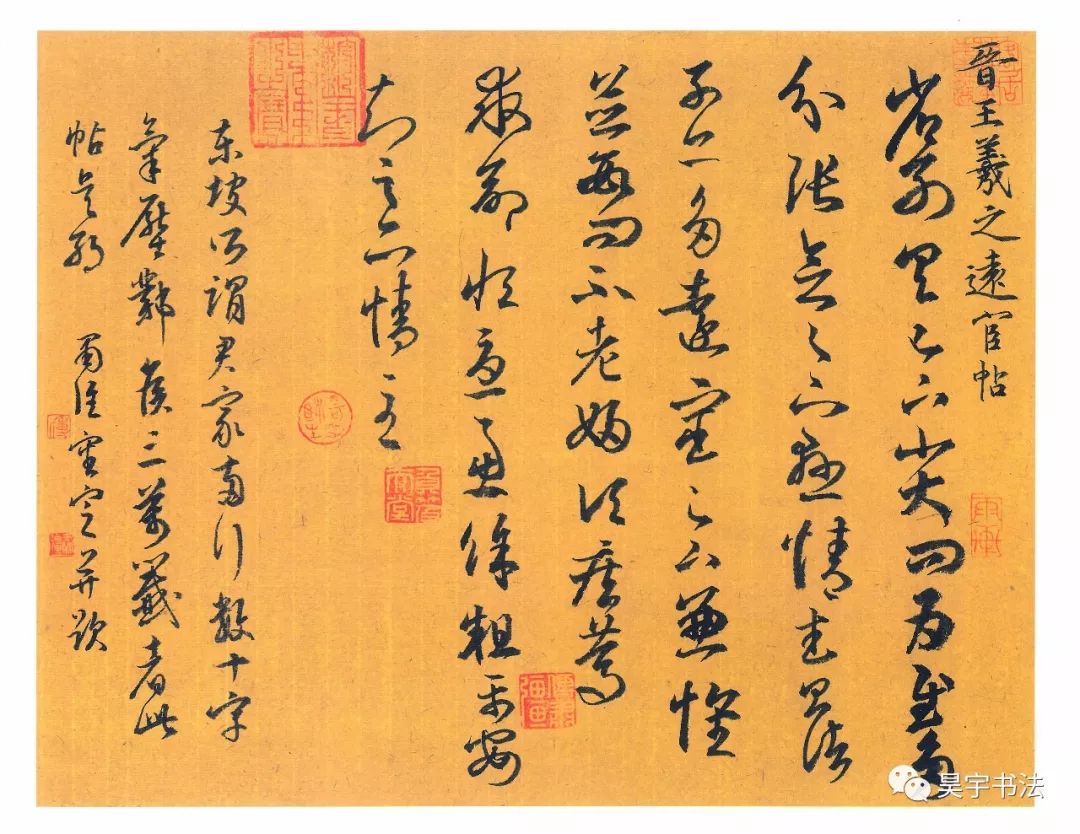 晉王羲之遠宦帖
省別具足下小大問為慰多
分張念足下懸情武昌諸
子亦多遠宦足下兼懷
並數問不老婦頃疾篤
救命恒憂慮餘粗平安
知足下情至
東坡所謂君家兩行數十字
氣壓鄴侯三萬籤者此
帖是耶 審定并題
昊宇书法